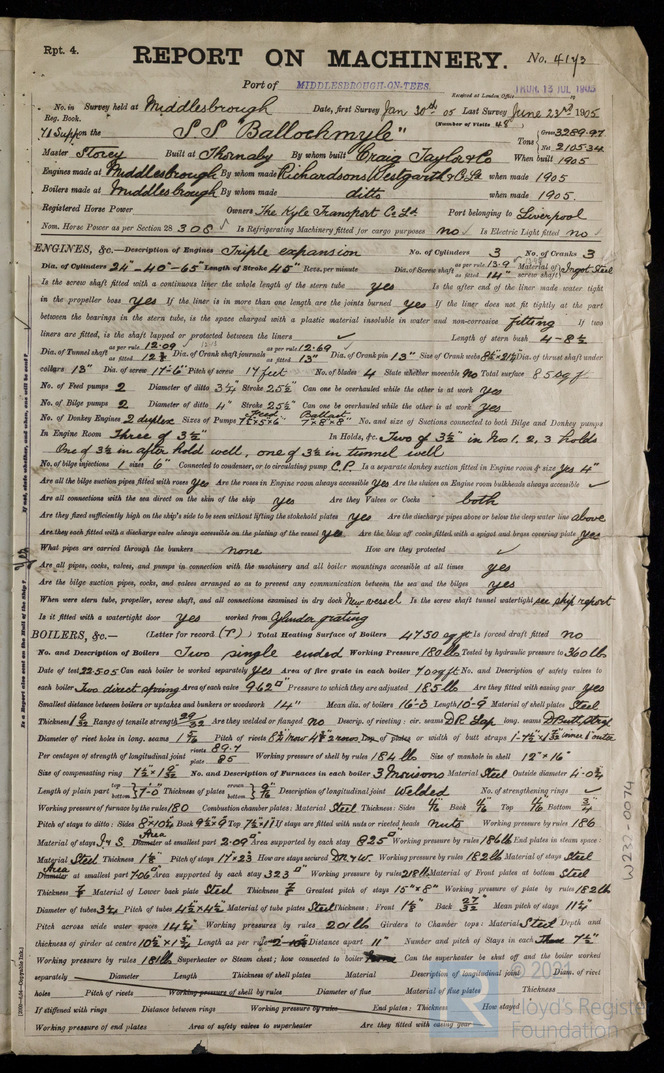 Rpt. 4.
REPORT ON MACHINERY.
No. 4173
Port of MIDDLESBROUGH-ON-TEES.
Received at London Office THUR. 13 JUL 1905
No. in Survey held at Middlesbrough Date, first Survey Jan 30th 05 Last Survey June 23rd 1905
Reg. Book. (Number of Visits 48)
71 Supp on the S.S. "Ballochmyle" Tons Gross 3289.97 Net 2105.34
Master Storey Built at Thornaby By whom built Craig Taylor & Co When built 1905
Engines made at Middlesbrough By whom made Richardsons Westgarth & Co Ld when made 1905
Boilers made at Middlesbrough By whom made ditto when made 1905.
Registered Horse Power Owners The Kyle Transport Co Ld. Port belonging to Liverpool
Nom. Horse Power as per Section 28 308 Is Refrigerating Machinery fitted for cargo purposes no Is Electric Light fitted no
ENGINES, &c.—Description of Engines Triple expansion No. of Cylinders 3 No. of Cranks 3
Dia. of Cylinders 24"-40"-65" Length of Stroke 45" Revs. per minute Dia. of Screw shaft as per rule 13.9 as fitted 14" Material of screw shaft Ingot Steel
Is the screw shaft fitted with a continuous liner the whole length of the stern tube yes Is the after end of the liner made water tight
in the propeller boss yes If the liner is in more than one length are the joints burned yes If the liner does not fit tightly at the part
between the bearings in the stern tube, is the space charged with a plastic material insoluble in water and non-corrosive fitting If two
liners are fitted, is the shaft lapped or protected between the liners Length of stern bush 4-8½
Dia. of Tunnel shaft as per rule 12.09 as fitted 12⅞ Dia. of Crank shaft journals as per rule 12.69 as fitted 13" Dia. of Crank pin 13" Size of Crank webs 8½ x 21½ Dia. of thrust shaft under
collars 13" Dia. of screw 17-6" Pitch of screw 17 feet No. of blades 4 State whether moveable no Total surface 85 sq ft
No. of Feed pumps 2 Diameter of ditto 3¼" Stroke 25½" Can one be overhauled while the other is at work yes
No. of Bilge pumps 2 Diameter of ditto 4" Stroke 25½" Can one be overhauled while the other is at work yes
No. of Donkey Engines 2 duplex Sizes of Pumps Feed 7½ x 5 x 6" Ballast 7 x 8 x 8" No. and size of Suctions connected to both Bilge and Donkey pumps
In Engine Room Three of 3½" In Holds, &c. Two of 3½" in No 1, 2, 3 holds
One of 3½ in after hold well, one of 3½ in tunnel well
No. of bilge injections 1 sizes 6" Connected to condenser, or to circulating pump C.P. Is a separate donkey suction fitted in Engine room & size yes 4"
Are all the bilge suction pipes fitted with roses yes Are the roses in Engine room always accessible yes Are the sluices on Engine room bulkheads always accessible
Are all connections with the sea direct on the skin of the ship yes Are they Valves or Cocks both
Are they fixed sufficiently high on the ship's side to be seen without lifting the stokehold plates yes Are the discharge pipes above or below the deep water line above
Are they each fitted with a discharge valve always accessible on the plating of the vessel yes Are the blow off cocks fitted with a spigot and brass covering plate yes
What pipes are carried through the bunkers none How are they protected
Are all pipes, cocks, valves, and pumps in connection with the machinery and all boiler mountings accessible at all times yes
Are the bilge suction pipes, cocks, and valves arranged so as to prevent any communication between the sea and the bilges yes
When were stern tube, propeller, screw shaft, and all connections examined in dry dock New vessel Is the screw shaft tunnel watertight see ship report
Is it fitted with a watertight door yes worked from cylinder grating
BOILERS, &c.— (Letter for record (T)) Total Heating Surface of Boilers 4750 sq ft Is forced draft fitted no
No. and Description of Boilers Two single ended Working Pressure 180 lbs Tested by hydraulic pressure to 360 lb
Date of test 22.5.05 Can each boiler be worked separately yes Area of fire grate in each boiler 70 sq ft No. and Description of safety valves to
each boiler Two direct spring Area of each valve 9.62" Pressure to which they are adjusted 185 lb Are they fitted with easing gear yes
Smallest distance between boilers or uptakes and bunkers or woodwork 14" Mean dia. of boilers 16-3 Length 10-9 Material of shell plates Steel
Thickness Range of tensile strength 29/32 Are they welded or flanged no Descrip. of riveting: cir. seams D.R. Lap long. seams
Diameter of rivet holes in long. seams Pitch of rivets Lap of plates or width of butt straps
Per centages of strength of longitudinal joint rivets 89.7 plate 85 Working pressure of shell by rules 184 lb Size of manhole in shell 12" x 16"
Size of compensating ring No. and Description of Furnaces in each boiler 3 Morisons Material Steel Outside diameter
Length of plain part top bottom 7-0 Thickness of plates crown bottom 9/16 Description of longitudinal joint Welded No. of strengthening rings
Working pressure of furnace by the rules 180 Combustion chamber plates: Material Steel Thickness: Sides Back Top Bottom
Pitch of stays to ditto: Sides 8 x 10½ Back 9½ x 9 Top 7½ x 11 If stays are fitted with nuts or riveted heads nuts Working pressure by rules 186
Material of stays I & S Area at smallest part 2.09 Area supported by each stay 82.5 Working pressure by rules 186 lb End plates in steam space:
Material Steel Thickness 1⅛" Pitch of stays 17 x 23 How are stays secured DN & W. Working pressure by rules 182 lb Material of stays Steel
Area at smallest part 7.06 Area supported by each stay 323 Working pressure by rules 218 lb Material of Front plates at bottom Steel
Thickness Material of Lower back plate Steel Thickness Greatest pitch of stays 15" x 8" Working pressure of plate by rules 182 lb
Diameter of tubes 3¼ Pitch of tubes 4½ x 4½ Material of tube plates Steel Thickness: Front Back 27/32 Mean pitch of stays 11¼
Pitch across wide water spaces 14½ Working pressures by rules 201 lb Girders to Chamber tops: Material Steel Depth and
thickness of girder at centre Length as per rule Distance apart 11" Number and pitch of Stays in each 7½"
Working pressure by rules 181 lb Superheater or Steam chest; how connected to boiler Can the superheater be shut off and the boiler worked
separately Diameter Length Thickness of shell plates Material Description of longitudinal joint Diam. of rivet
holes Pitch of rivets Working pressure of shell by rules Diameter of flue Material of flue plates Thickness
If stiffened with rings Distance between rings Working pressure by rules End plates: Thickness How stayed
Working pressure of end plates Area of safety valves to superheater Are they fitted with easing gear
If not, state whether, and when, one will be sent?
Is a Report also sent on the Hull of the Ship?
W233-0074
© 2021
Lloyd's Register
Foundation